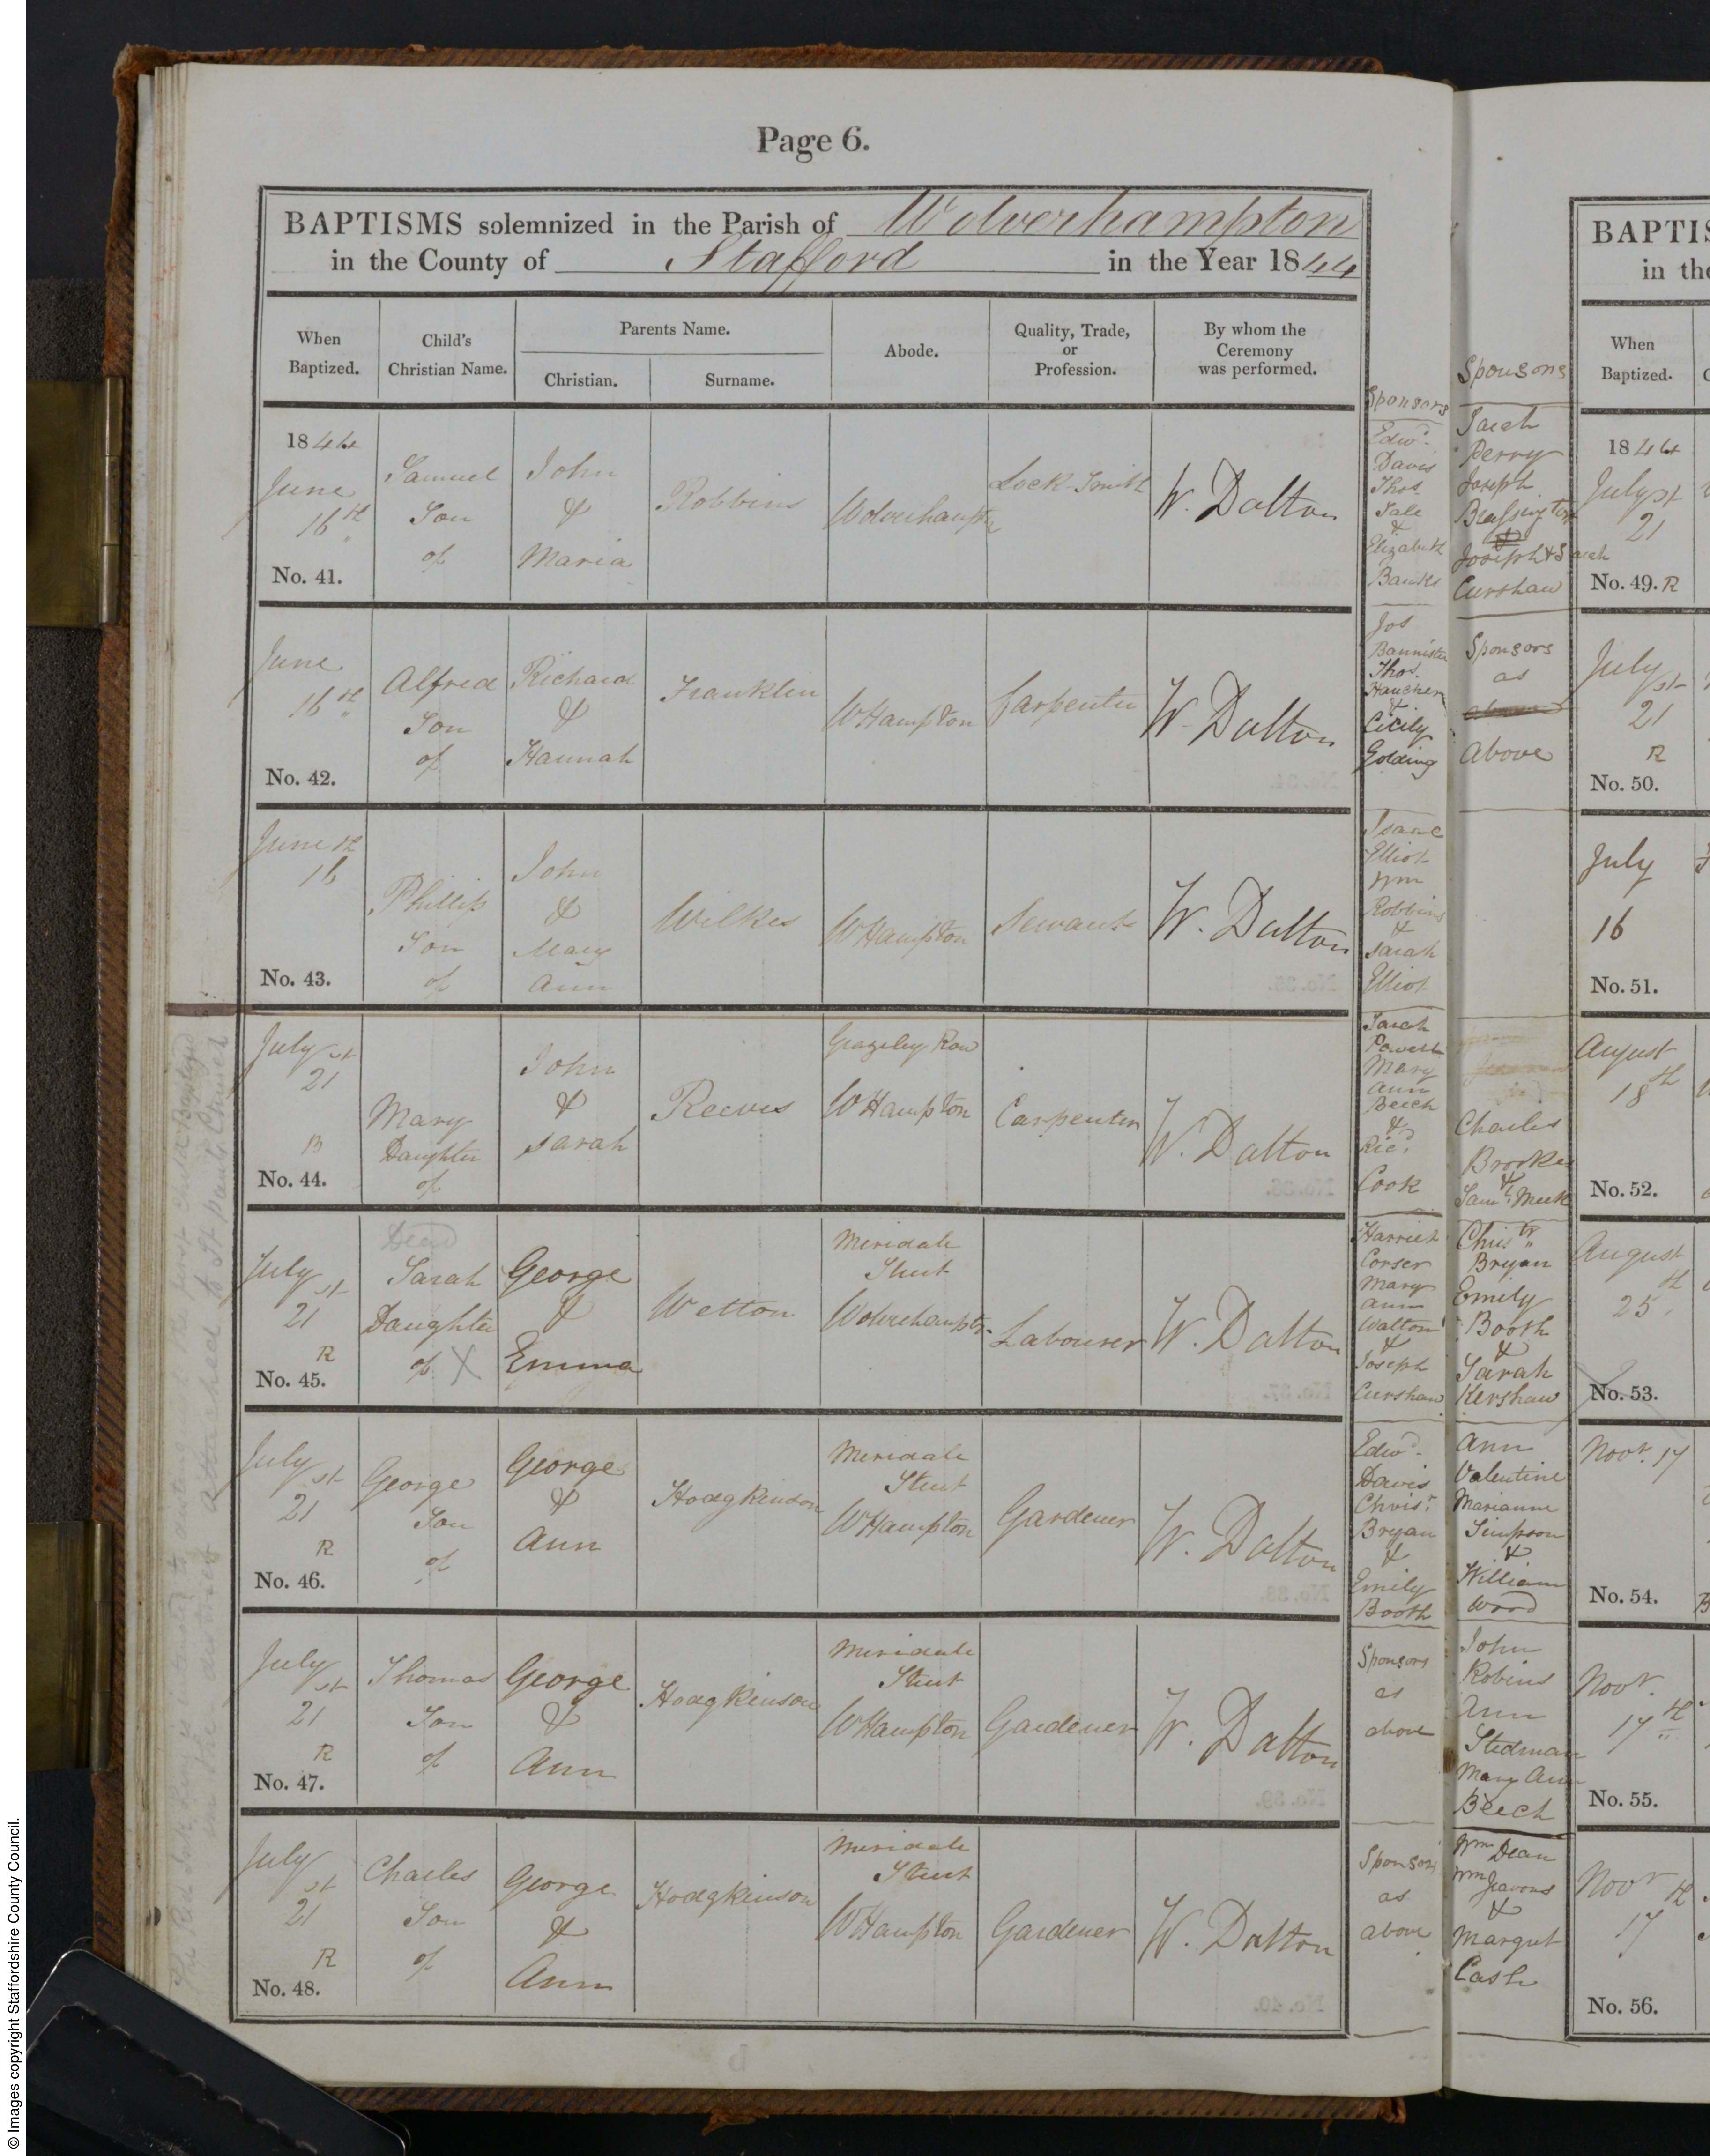 Page 6.
BAPTISMS solemnized in the Parish of Wolverhampton
in the County of Stafford in the Year 1844
When Baptized.
Child's Christian Name.
Parents Name.
Christian.
Surname.
Abode.
Quality, Trade, or Profession.
By whom the Ceremony was performed.
Sponsors
1844
June
16th
No. 41.
Samuel
Son
of
John
&
Maria
Robbins
Wolverhampton
Lock-Smith
W. Dalton
Edwd.
Davis
Thos.
Sale
&
Elizabeth
Banks
June
16th
No. 42.
Alfred
Son
of
Richard
&
Hannah
Franklin
WHampton
Carpenter
W. Dalton
Jos
Bannister
Thos.
&
Cicily
Golding
June th
16
No. 43.
Phillip
Son
of
John
&
Mary
Ann
Wilkes
WHampton
Servant
W. Dalton
Isaac
Elliot
Wm
Robbins
&
Sarah
Elliot
July st
21
No. 44.
Mary
Daughter
of
John
&
Sarah
Reeves
Grazeley Row
WHampton
Carpenter
W. Dalton
Sarah
Powell
Mary
Ann
Beech
&
Ricd.
Cook
July st
21
R
No. 45.
Dead
Sarah
Daughter
of X
George
&
Emma
Wetton
Meridale
Street
Wolverhampton
Labourer
W. Dalton
Harriet
Corser
Mary
Ann
Walton
&
Joseph
Curshaw
July st
21
R
No. 46.
George
Son
of
George
&
Ann
Hodgkinson
Meridale
Street
WHampton
Gardener
W. Dalton
Edwd.
Davis
Chrisr.
Bryan
&
Emily
Booth
July st
21
R
No. 47.
Thomas
Son
of
George
&
Ann
Hodgkinson
Meridale
Street
WHampton
Gardener
W. Dalton
Sponsors
as
above
July st
21
R
No. 48.
Charles
Son
of
George
&
Ann
Hodgkinson
Meridale
Street
WHampton
Gardener
W. Dalton
Sponsors
as
above
Sponsons
Sarah
Perry
Joseph
Joseph & Sarah
Curshaw
Sponsors
as
above
Charles
Brookes
&
Saml. Meek
Chrisr.
Bryan
Emily
Booth
&
Sarah
Kershaw
Ann
Valentine
Marianne
Simpson
&
William
Wood
John
Robins
Ann
Stedman
Mary Ann
Beech
Wm Dean
Wm Jeavons
&
Margret
Cash
BAPTIS
in the
When Baptized.
1844
July st
21
No. 49. R
July
st
21
R
No. 50.
July
16
No. 51.
August
18th
No. 52.
August
25th
No. 53.
Novr. 17
No. 54.
Novr.
17th
No. 55.
Novr th
17
No. 56.
© Images copyright Staffordshire County Council.